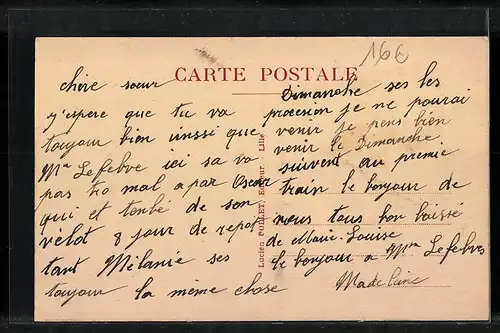 166
CARTE POSTALE
chère soeur
y'espere que tu va
toujour bien inssi que
Mr Lefebve ici sa va
pas tro mal a par Oscar
qui et tonbé de son
velot 8 jour de repot
tant Mélanie ses
toujour la même chose
Lucien POLLET, Editeur, Lille
Dimanche ses les
procesion je ne pourai
venir je pens bien
venir le Dimanche
suivent au premie
train le bonjour de
nous tous bon baissé
de Marie-Louise
le bonjour a Mr Lefebve
Madelaine